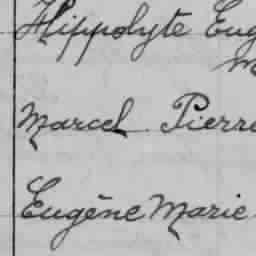 Hippolyte Eug
M
Marcel Pierre
Eugène Marie